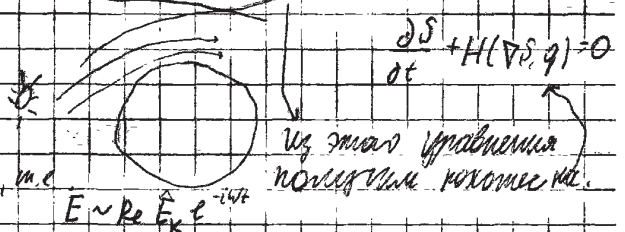 ∂S/∂t + H(∇S, q) = 0
из этого уравнения
получим похожее на.
, т.е.
E ~ Re Ê_k e^{-iωt}